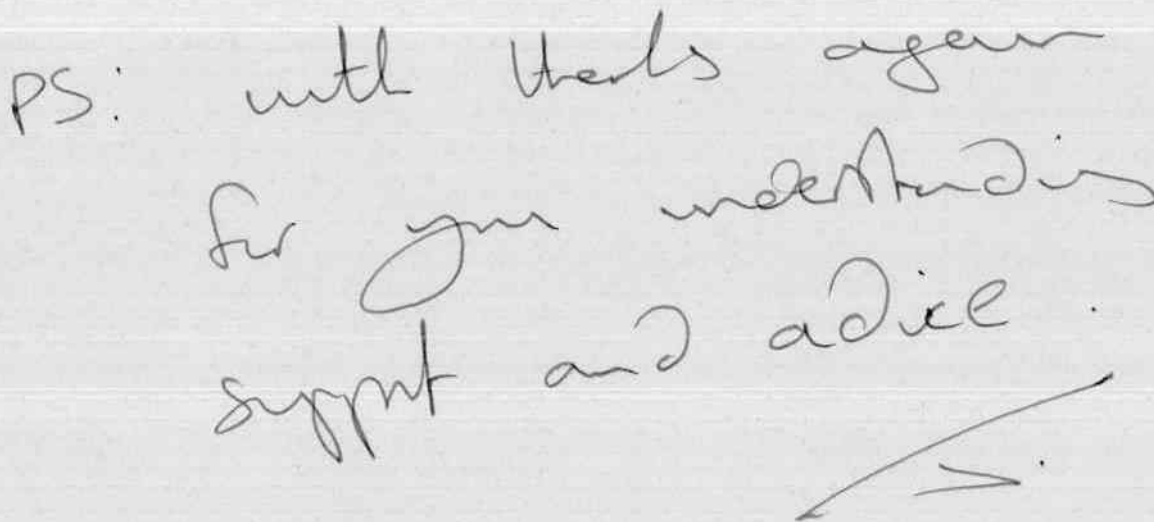 PS: with thanks again
for your understanding
support and advice.